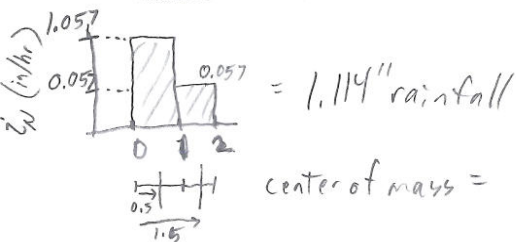 1.057
i_N (in/hr)
0.057
0.057
= 1.114" rainfall
0 1 2
0.5
1.5
center of mass =